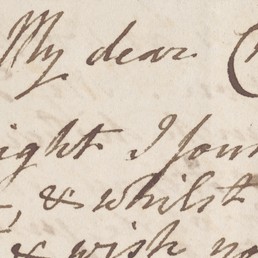 My dear
ight I foun
, & whilst
& wish yo